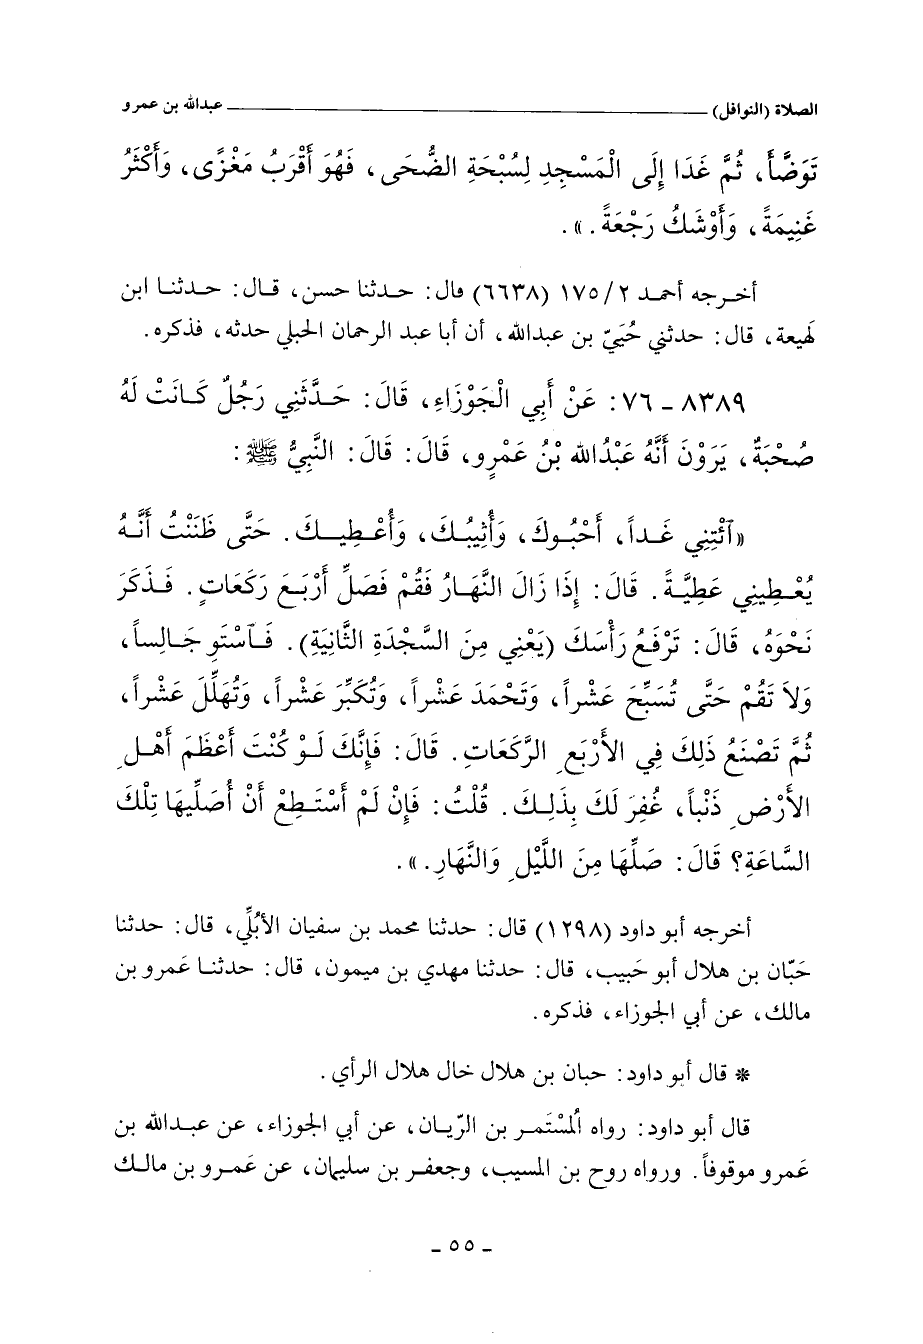 الصلاة (النوافل) ــــــــــــــــــــــــــــــــــــــ عبدالله بن عمرو
تَوَضَّأَ، ثُمَّ غَدَا إِلَى الْمَسْجِدِ لِسُبْحَةِ الضُّحَى، فَهُوَ أَقْرَبُ مَغْزًى، وَأَكْثَرُ
غَنِيمَةً، وَأَوْشَكُ رَجْعَةً.».
أخرجه أحمد ٢/ ١٧٥ (٦٦٣٨) قال: حدثنا حسن، قال: حدثنا ابن
لهيعة، قال: حدثني حُيَيّ بن عبدالله، أن أبا عبد الرحمان الحبلي حدثه، فذكره.
٨٣٨٩ ـ ٧٦: عَنْ أَبِي الْجَوْزَاءِ، قَالَ: حَدَّثَنِي رَجُلٌ كَانَتْ لَهُ
صُحْبَةٌ، يَرَوْنَ أَنَّهُ عَبْدُالله بْنُ عَمْرٍو، قَالَ: قَالَ: النَّبِيُّ ﷺ:
«آئْتِنِي غَداً، أَحْبُوكَ، وَأُثِيبُكَ، وَأُعْطِيكَ. حَتَّى ظَنَنْتُ أَنَّهُ
يُعْطِينِي عَطِيَّةً. قَالَ: إِذَا زَالَ النَّهَارُ فَقُمْ فَصَلِّ أَرْبَعَ رَكَعَاتٍ. فَذَكَرَ
نَحْوَهُ، قَالَ: تَرْفَعُ رَأْسَكَ (يَعْنِي مِنَ السَّجْدَةِ الثَّانِيَةِ). فَآسْتَوِ جَالِساً،
وَلاَ تَقُمْ حَتَّى تُسَبِّحَ عَشْراً، وَتَحْمَدَ عَشْراً، وَتُكَبِّرَ عَشْراً، وَتُهَلِّلَ عَشْراً،
ثُمَّ تَصْنَعُ ذَلِكَ فِي الأَرْبَعِ الرَّكَعَاتِ. قَالَ: فَإِنَّكَ لَوْ كُنْتَ أَعْظَمَ أَهْلِ
الأَرْضِ ذَنْباً، غُفِرَ لَكَ بِذَلِكَ. قُلْتُ: فَإِنْ لَمْ أَسْتَطِعْ أَنْ أُصَلِّيَهَا تِلْكَ
السَّاعَةِ؟ قَالَ: صَلِّهَا مِنَ اللَّيْلِ وَالنَّهَارِ.».
أخرجه أبو داود (١٢٩٨) قال: حدثنا محمد بن سفيان الأُبُلِّي، قال: حدثنا
حَبّان بن هلال أبو حَبيب، قال: حدثنا مهدي بن ميمون، قال: حدثنا عَمرو بن
مالك، عن أبي الجوزاء، فذكره.
* قال أبو داود: حبان بن هلال خال هلال الرأي.
قال أبو داود: رواه الْمُسْتَمر بن الرّيان، عن أبي الجوزاء، عن عبدالله بن
عَمرو موقوفاً. ورواه روح بن المسيب، وجعفر بن سليمان، عن عَمرو بن مالك
ـ ٥٥ ـ